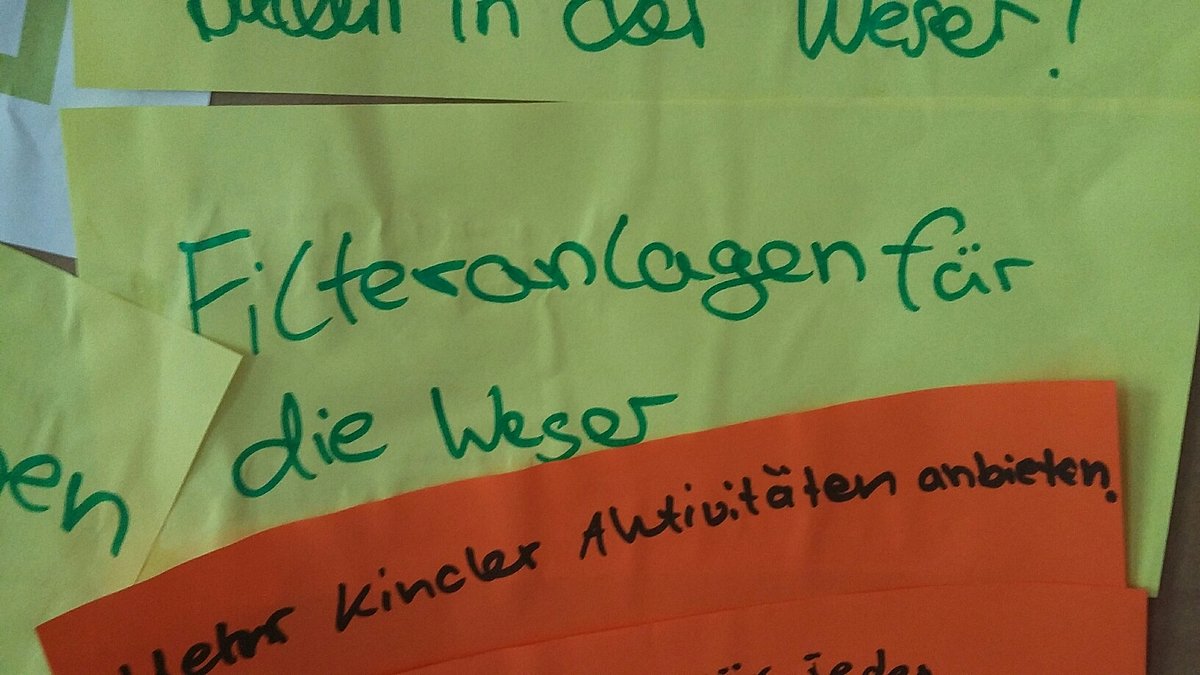 in der Weser!
Filteranlagen für
die Weser
Mehr Kinder Aktivitäten anbieten.
jeder